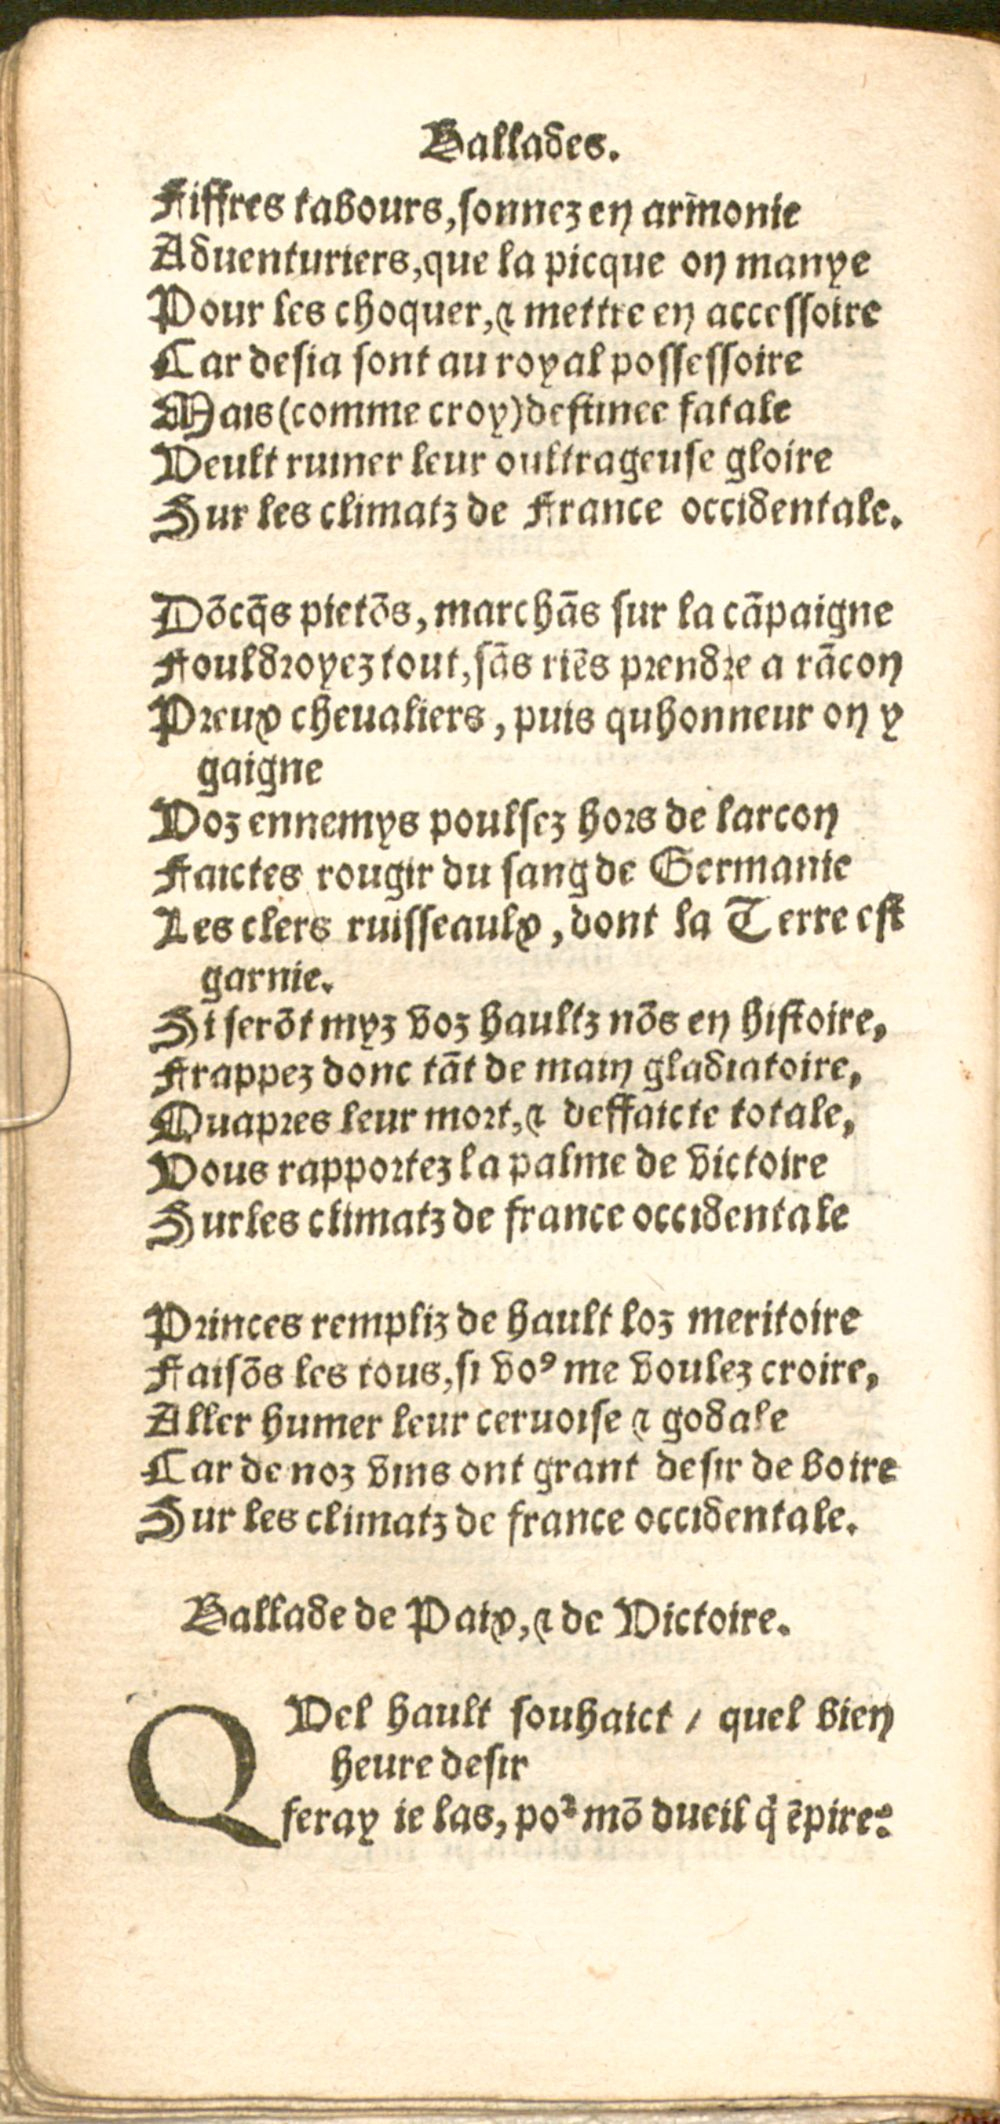 Ballades.
Fiffres tabours, sonnez en armonie
Aduenturiers, que la picque on manye
Pour les choquer, & mettre en accessoire
Car desia sont au royal possessoire
Mais (comme croy) destinee fatale
Veult ruiner leur oultrageuse gloire
Sur les climatz de France occidentale.
Dõcq̃s pietõs, marchãs sur la cãpaigne
Fouldroyez tout, sãs riẽs prendre a rãcon
Preux cheualiers, puis quhonneur on y
gaigne
Voz ennemys poulsez hors de larcon
Faictes rougir du sang de Germanie
Les clers ruisseaulx, dont la Terre est
garnie.
Si serõt myz voz haultz nõs en histoire,
Frappez donc tãt de main gladiatoire,
Quapres leur mort, & deffaicte totale,
Vous rapportez la palme de victoire
Sur les climatz de france occidentale
Princes rempliz de hault loz meritoire
Faisõs les tous, si voꝰ me voulez croire,
Aller humer leur ceruoise & godale
Car de noz vins ont grant desir de boire
Sur les climatz de france occidentale.
Ballade de Paix, & de Victoire.
QVel hault souhaict / quel bien
heure desir
feray ie las, poꝛ mõ dueil q̃ ẽpire: